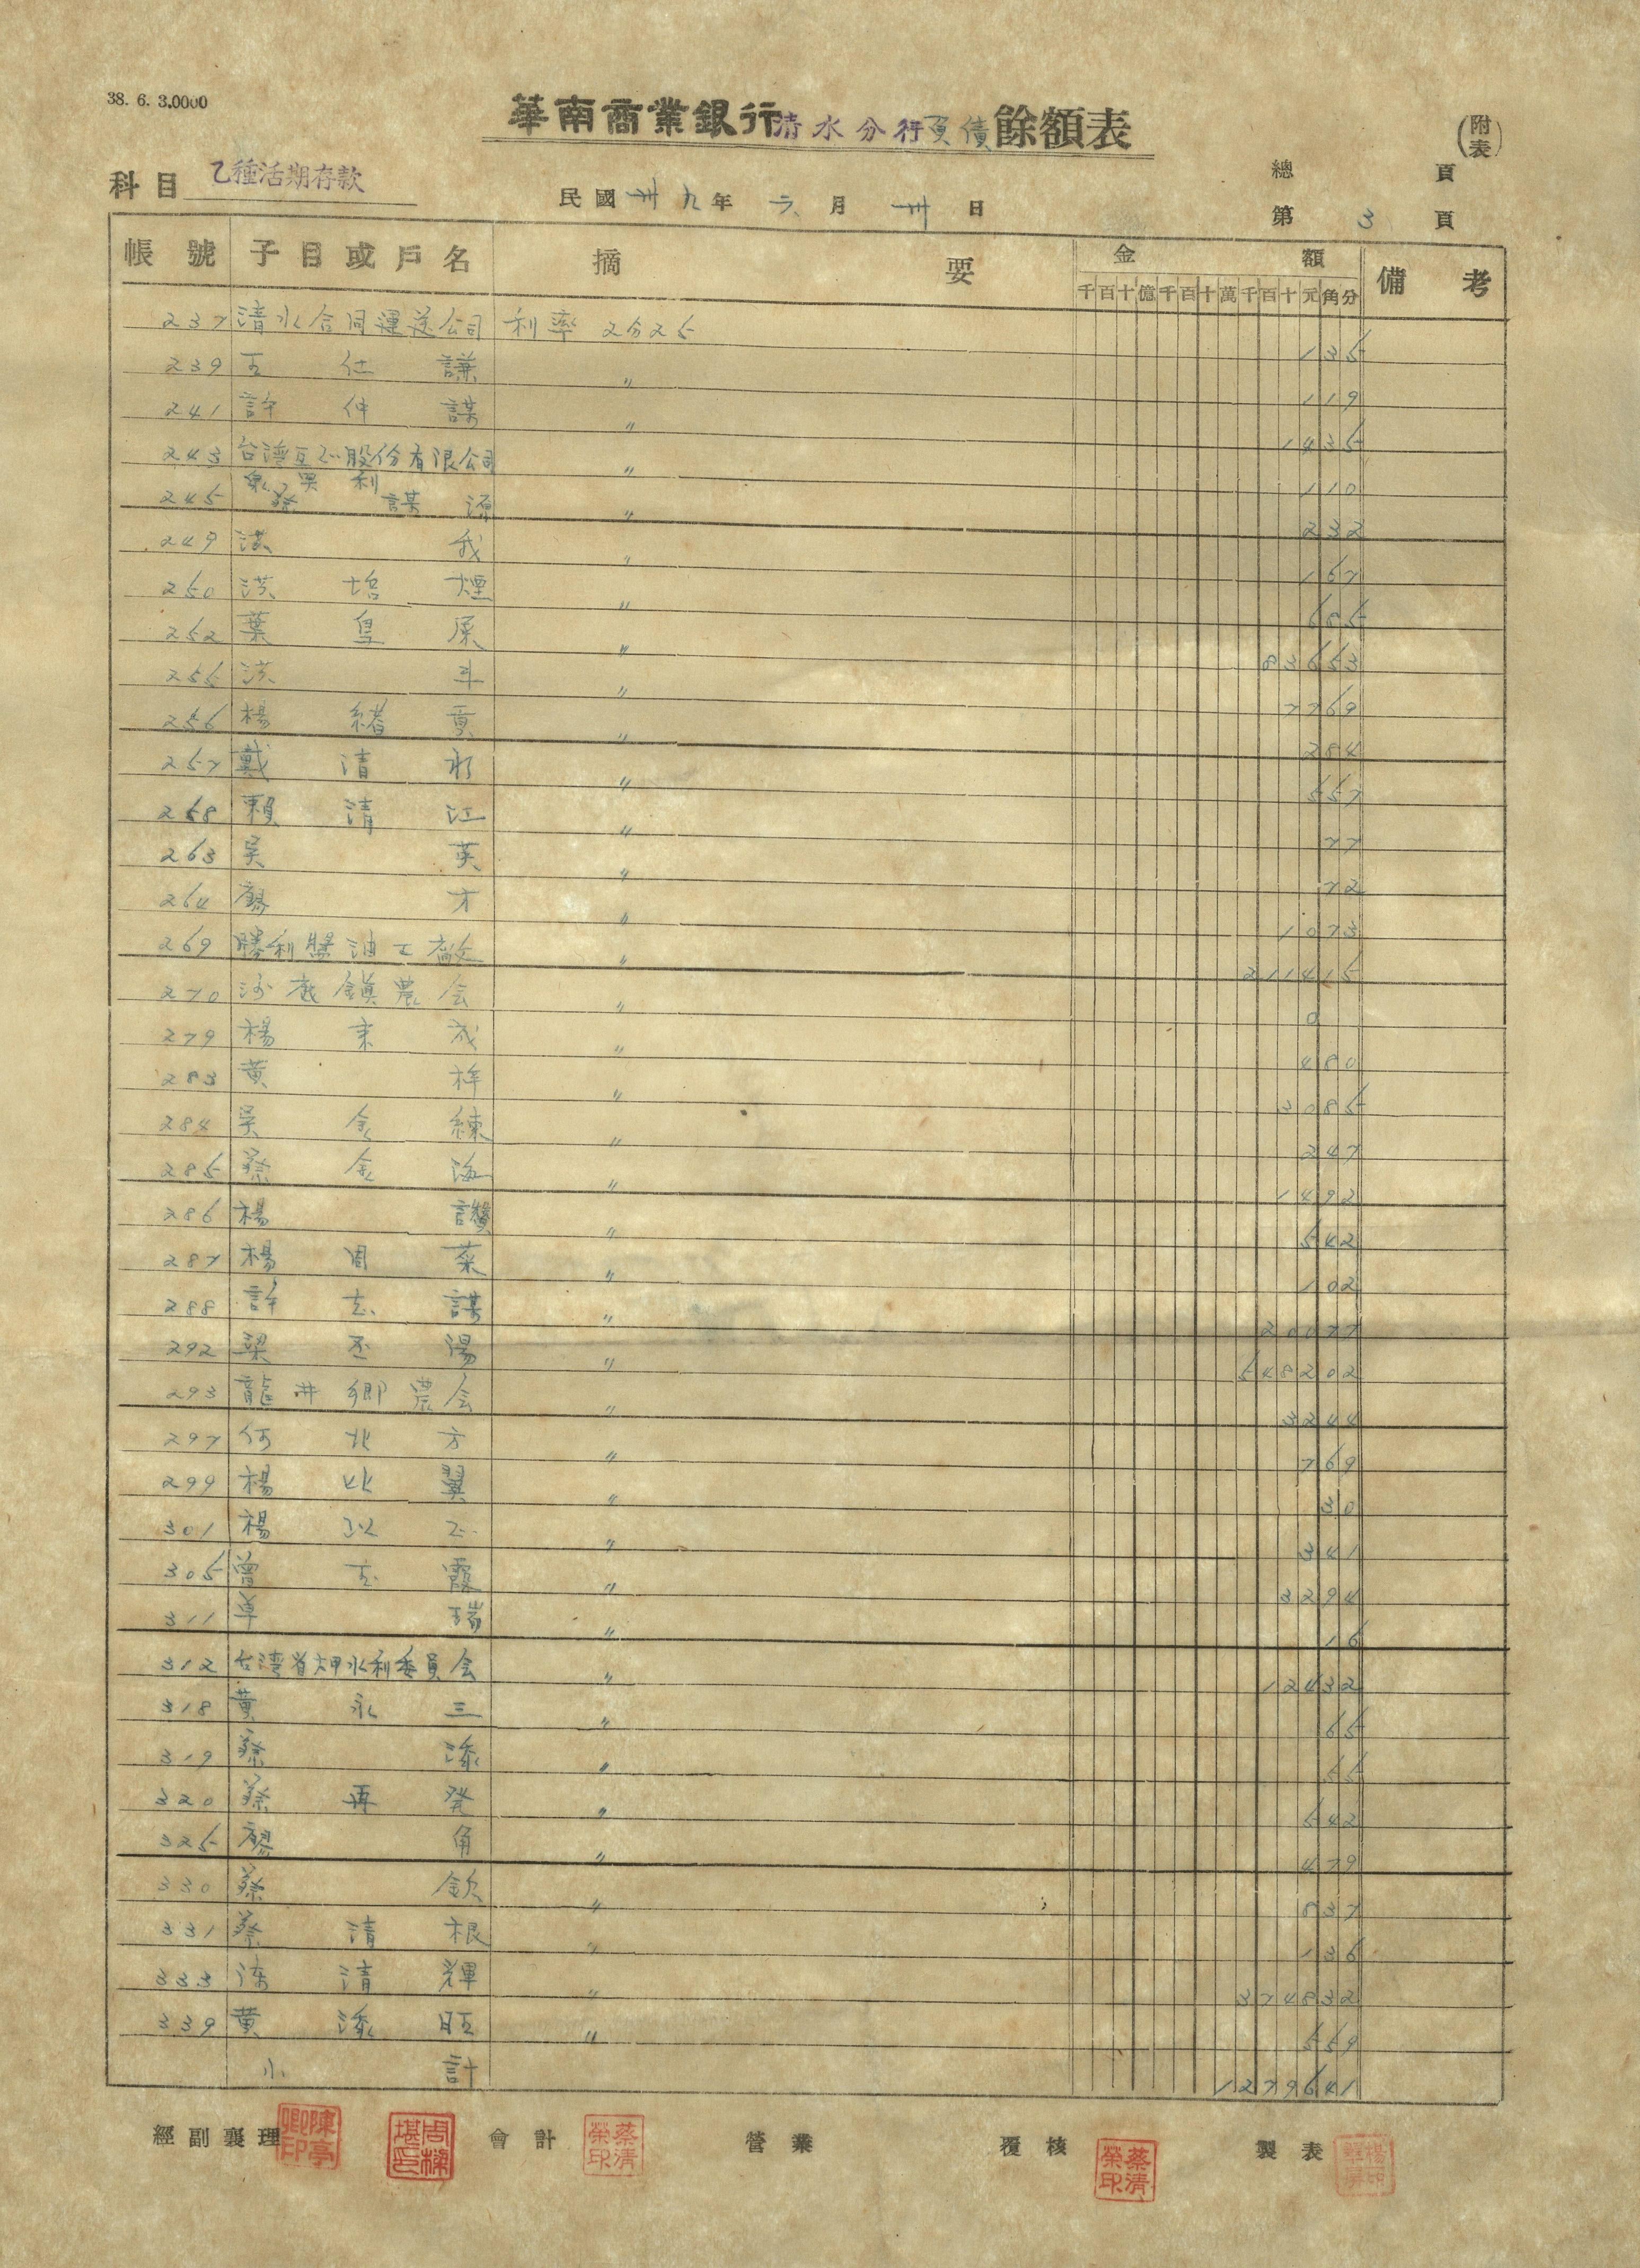 38. 6. 3.0000
華南商業銀行清水分行負債餘額表
(附表)
科目 乙種活期存款
民國卅九年六月卅日
總 頁
第 3 頁
帳號 子目或戶名 摘要 金額 備考
千百十億千百十萬千百十元角分
237 清水合同運送公司 利率 2分25 135
239 王仕謙 〃 119
241 許仲謀 〃 1435
243 台灣互正股份有限公司 〃 110
245 蔡謀源 〃 232
249 洪我 〃 167
250 洪培煙 〃 685
252 葉皇屎 〃 83653
255 洪斗 〃 7769
256 楊緒賓 〃 284
257 戴清彬 〃 557
258 賴清江 〃 77
263 吳英 〃 72
264 廖才 〃 1073
269 勝利醬油工廠 〃 211415
270 沙鹿鎮農会 〃 0
279 楊東成 〃 480
283 黃梓 〃 3085
284 吳金練 〃 247
285 蔡金海 〃 1492
286 楊讚 〃 542
287 楊周菜 〃 102
288 許志謀 〃 20077
292 梁丕湯 〃 548202
293 龍井鄉農会 〃 3244
297 何北方 〃 769
299 楊比翼 〃 30
301 楊以正 〃 341
305 曾玉霞 〃 3294
311 卓瑞 〃 16
312 台灣省大甲水利委員会 〃 12432
318 黃永三 〃 65
319 蔡添 〃 55
320 蔡再発 〃 542
325 廖角 〃 479
330 蔡欽 〃 837
331 蔡清根 〃 136
333 陳清輝 〃 374832
339 黃添旺 〃 559
小計 1279641
經副襄理 會計 營業 覆核 製表
陳亭卿印 周樑堪印 蔡清榮印 蔡清榮印